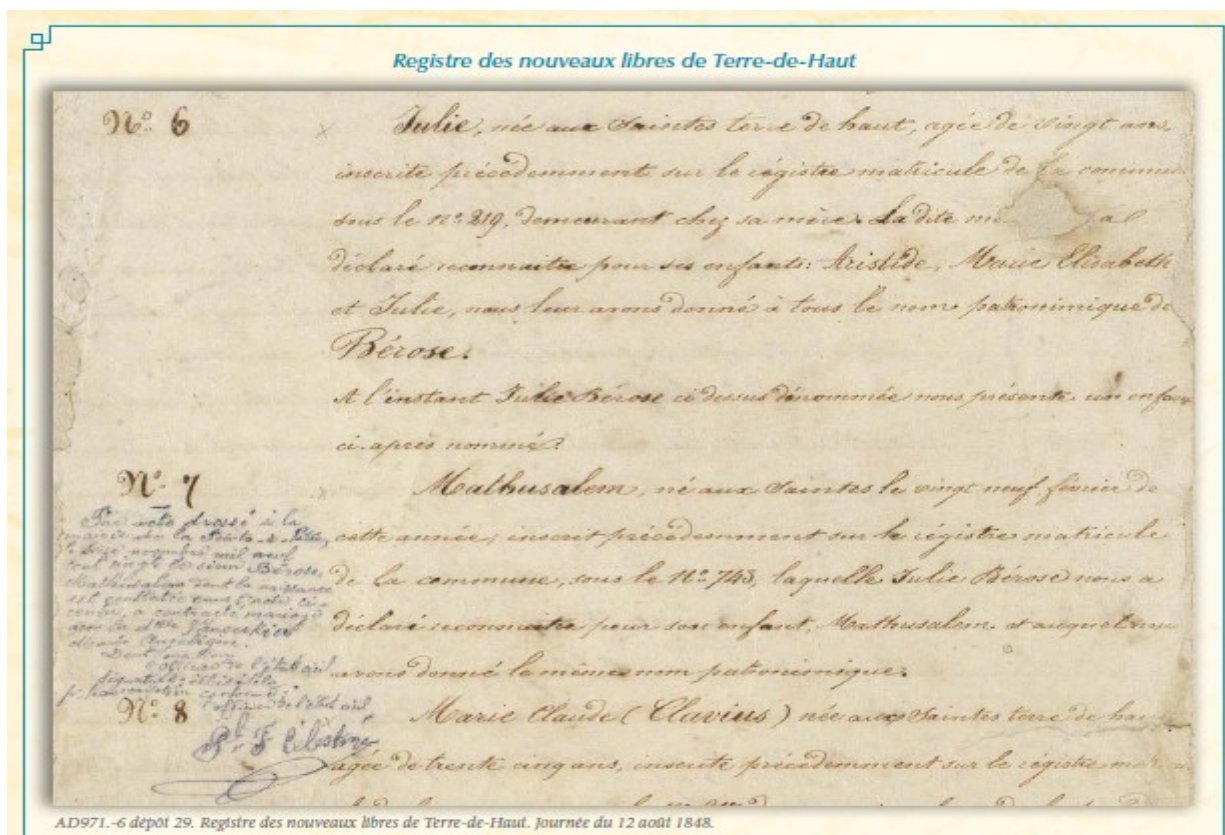 Registre des nouveaux libres de Terre-de-Haut
Nº 6
Julie, née aux Saintes terre de haut, agée de vingt ans,
inscrite précédemment sur le régistre matricule de la commu
sous le nº 219, demeurant chez sa mère. La dite m a
déclaré reconnaitre pour ses enfants: Aristide, Marie Elisabeth
et Julie, nous leur avons donné à tous le nom patronimique de
Bérose.
A l'instant Julie Bérose ci dessus dénommée nous présente un enfan
ci-après nommé:
Nº 7
Mathusalem, né aux Saintes le vingt neuf février de
cette année, inscrit précédemment sur le régistre matricule
de la commune, sous le Nº 743, laquelle Julie Bérose nous a
déclaré reconnaitre pour son enfant, Mathusalem et auquel nous
avons donné le même nom patronimique.
Par acte dressé à la
mairie de la Pointe-à-Pitre,
le seize novembre mil neuf
cent vingt le sieur Bérose,
Mathusalem dont la naissance
est constatée dans l'acte ci-
contre, a contracté mariage
avec la
Angélique.
l'officier de l'état civil
l'officier de l'état civil
F Célestine
Nº 8
Marie Claude (Clavius) née aux Saintes terre de hau
agée de trente cinq ans, inscrite précédemment sur le régistre
AD971.-6 dépôt 29. Registre des nouveaux libres de Terre-de-Haut. Journée du 12 août 1848.